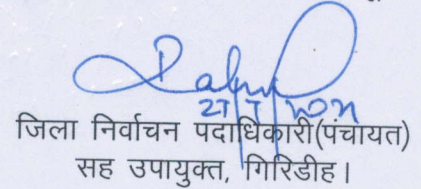 जिला निर्वाचन पदाधिकारी(पंचायत)
सह उपायुक्त, गिरिडीह।